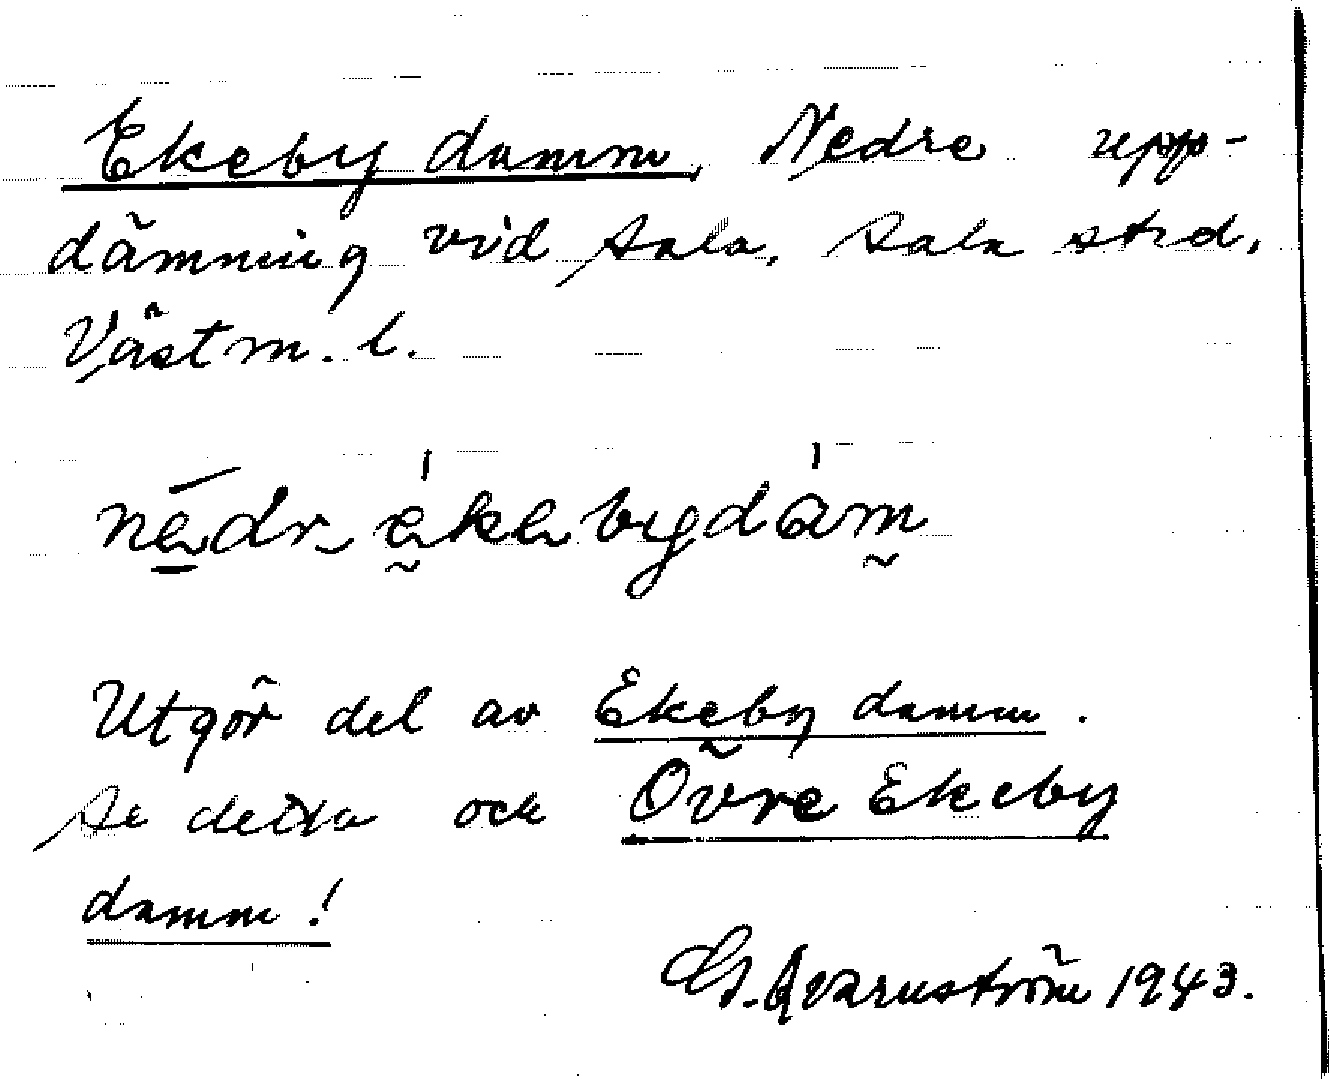 Ekeby damm, Nedre upp-
dämning vid Sala, Sala std,
Västm. l.
nedr ekebydam
Utgör del av Ekeby damm.
Se detta och Övre Ekeby
damm!
G. Qvarnström 1943.